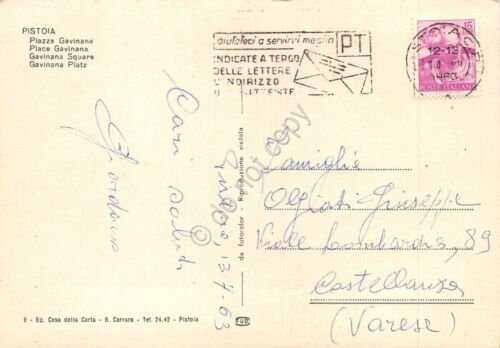 PISTOIA
Piazza Gavinana
Place Gavinana
Gavinana Square
Gavinana Platz
aiutateci a servirvi meglio
PT
INDICATE A TERGO
DELLE LETTERE
L'INDIRIZZO
12-13
14
1963
15
POSTE ITALIANE
Cari saluti
Giordano
13-7-63
da fotocolor - Riproduzione vietata
Famiglie
Olgiati Giuseppe
Viale Lombardia, 89
Castellanza
(Varese)
9 - Ed. Casa della Carta - G. Carrara - Tel. 24.42 - Pistoia